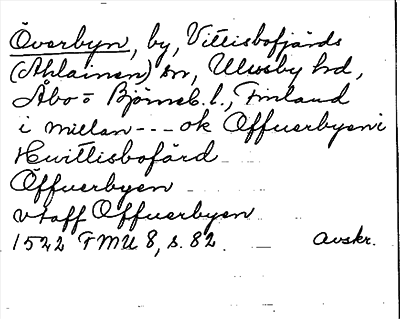 Överbyn, by, Vittisbofjärds
(Ahlainen) sn, Ulvsby hd,
Åbo- o Björneb. l., Finland
i millan --- ok Offuerbysn i
Huittisbofärd
Öffuerbyen
vtaff Offuerbyen
1522 FMU 8, s. 82. Avskr.